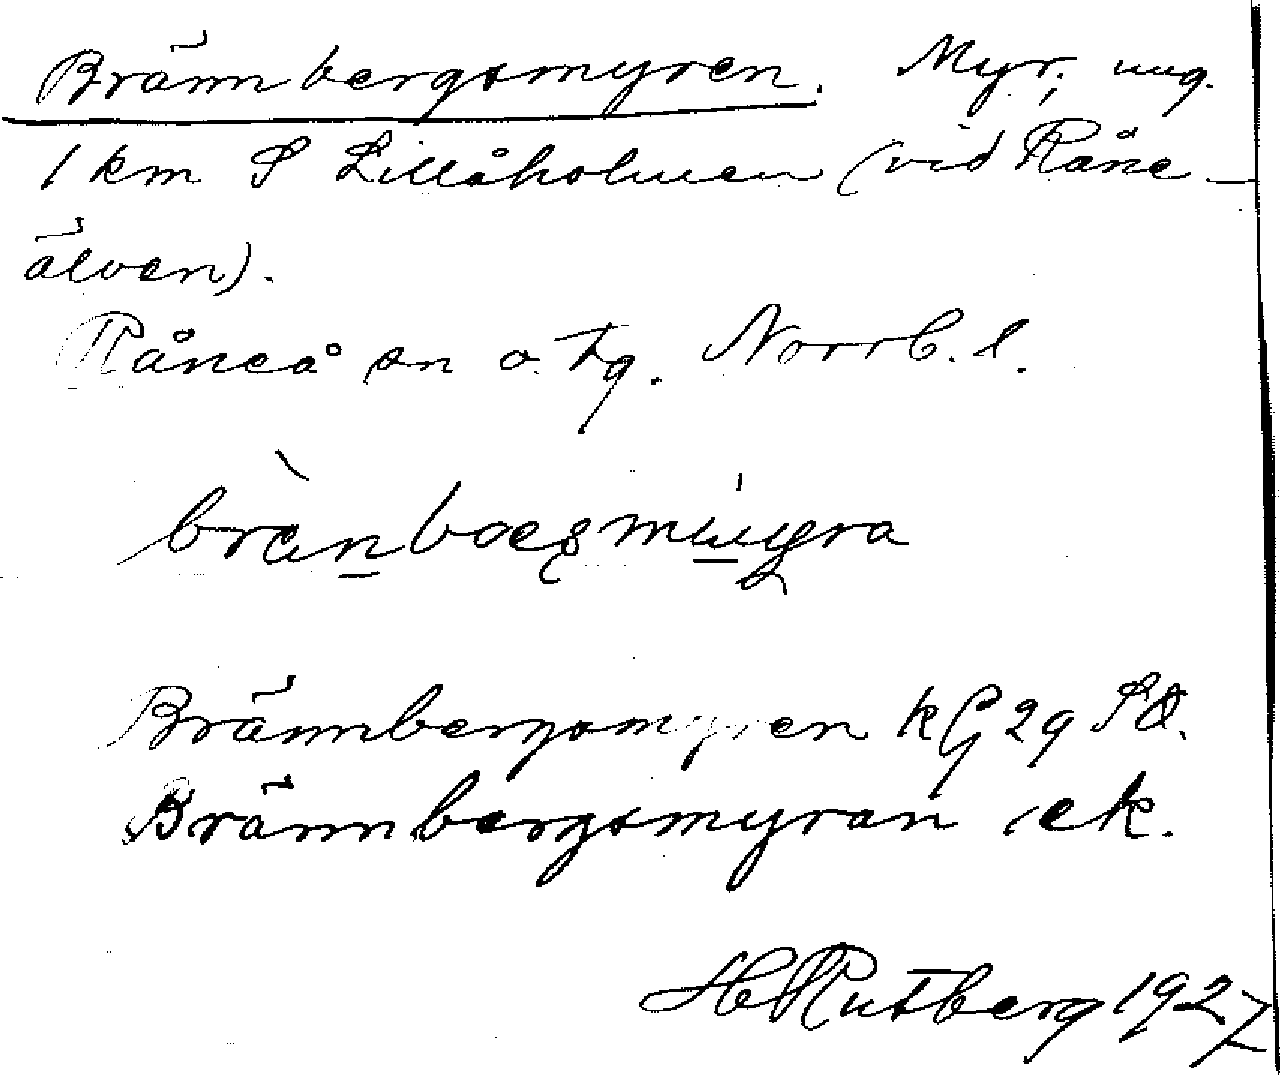 Brännbergsmyren. Myr, ung.
1 km S Lillåholmen (vid Råne-
älven).
Råneå sn o. tg. Norrb. l.
Brännbergsmyren kG 29 SÖ.
Brännbergsmyran ek.
H Rutberg 1927